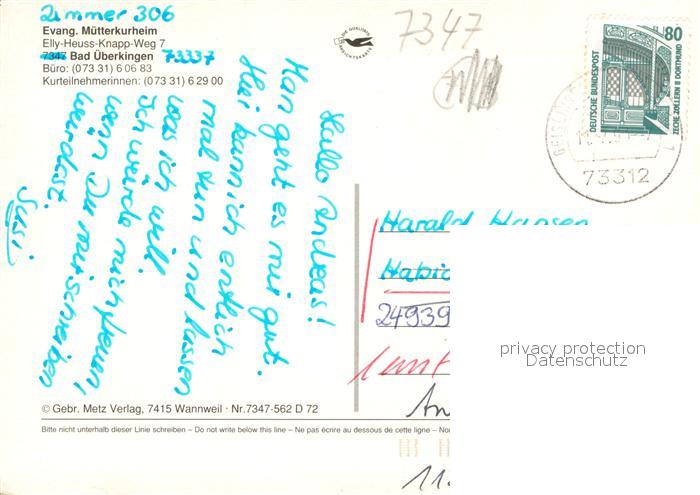 Zimmer 306
Evang. Mütterkurheim
Elly-Heuss-Knapp-Weg 7
7347 Bad Überkingen 73337
Büro: (073 31) 6 06 83
Kurteilnehmerinnen: (073 31) 6 29 00
7347
80
DEUTSCHE BUNDESPOST
ZECHE ZOLLERN II DORTMUND
73312
Hallo Andreas!
Man geht es mir gut.
Hei kann ich entlich
mal tun und lassen
was ich will.
Ich würde mich freuen,
wenn Du mir schreiben
werdest.
Susi
Harald Hansen
Habic
24939
© Gebr. Metz Verlag, 7415 Wannweil · Nr.7347-562 D 72
Bitte nicht unterhalb dieser Linie schreiben – Do not write below this line – Ne pas écrire au dessous de cette ligne –
11.
privacy protection
Datenschutz